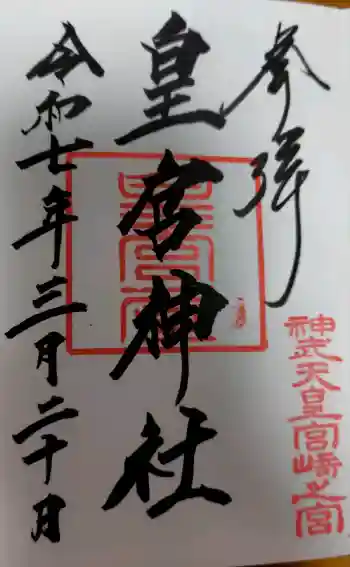 奉拝
神武天皇宮崎之宮
皇宮神社
令和七年三月二十日